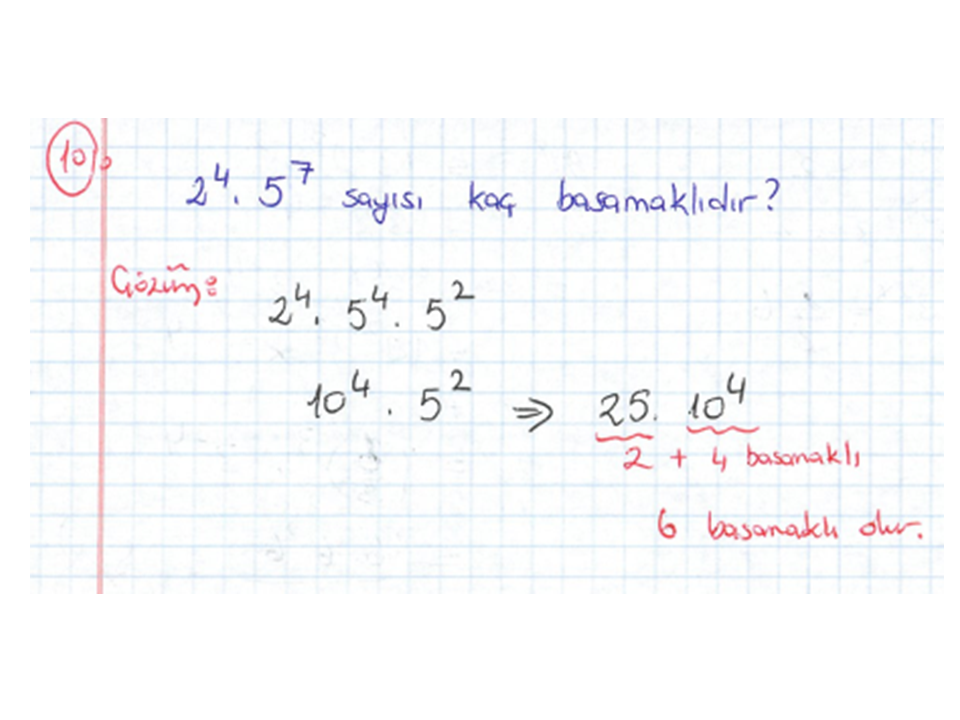 10)
2⁴. 5⁷ sayısı kaç basamaklıdır?
Çözüm:
2⁴. 5⁴. 5²
10⁴. 5² ⇒ 25. 10⁴
2 + 4 basamaklı
6 basamaklı olur.